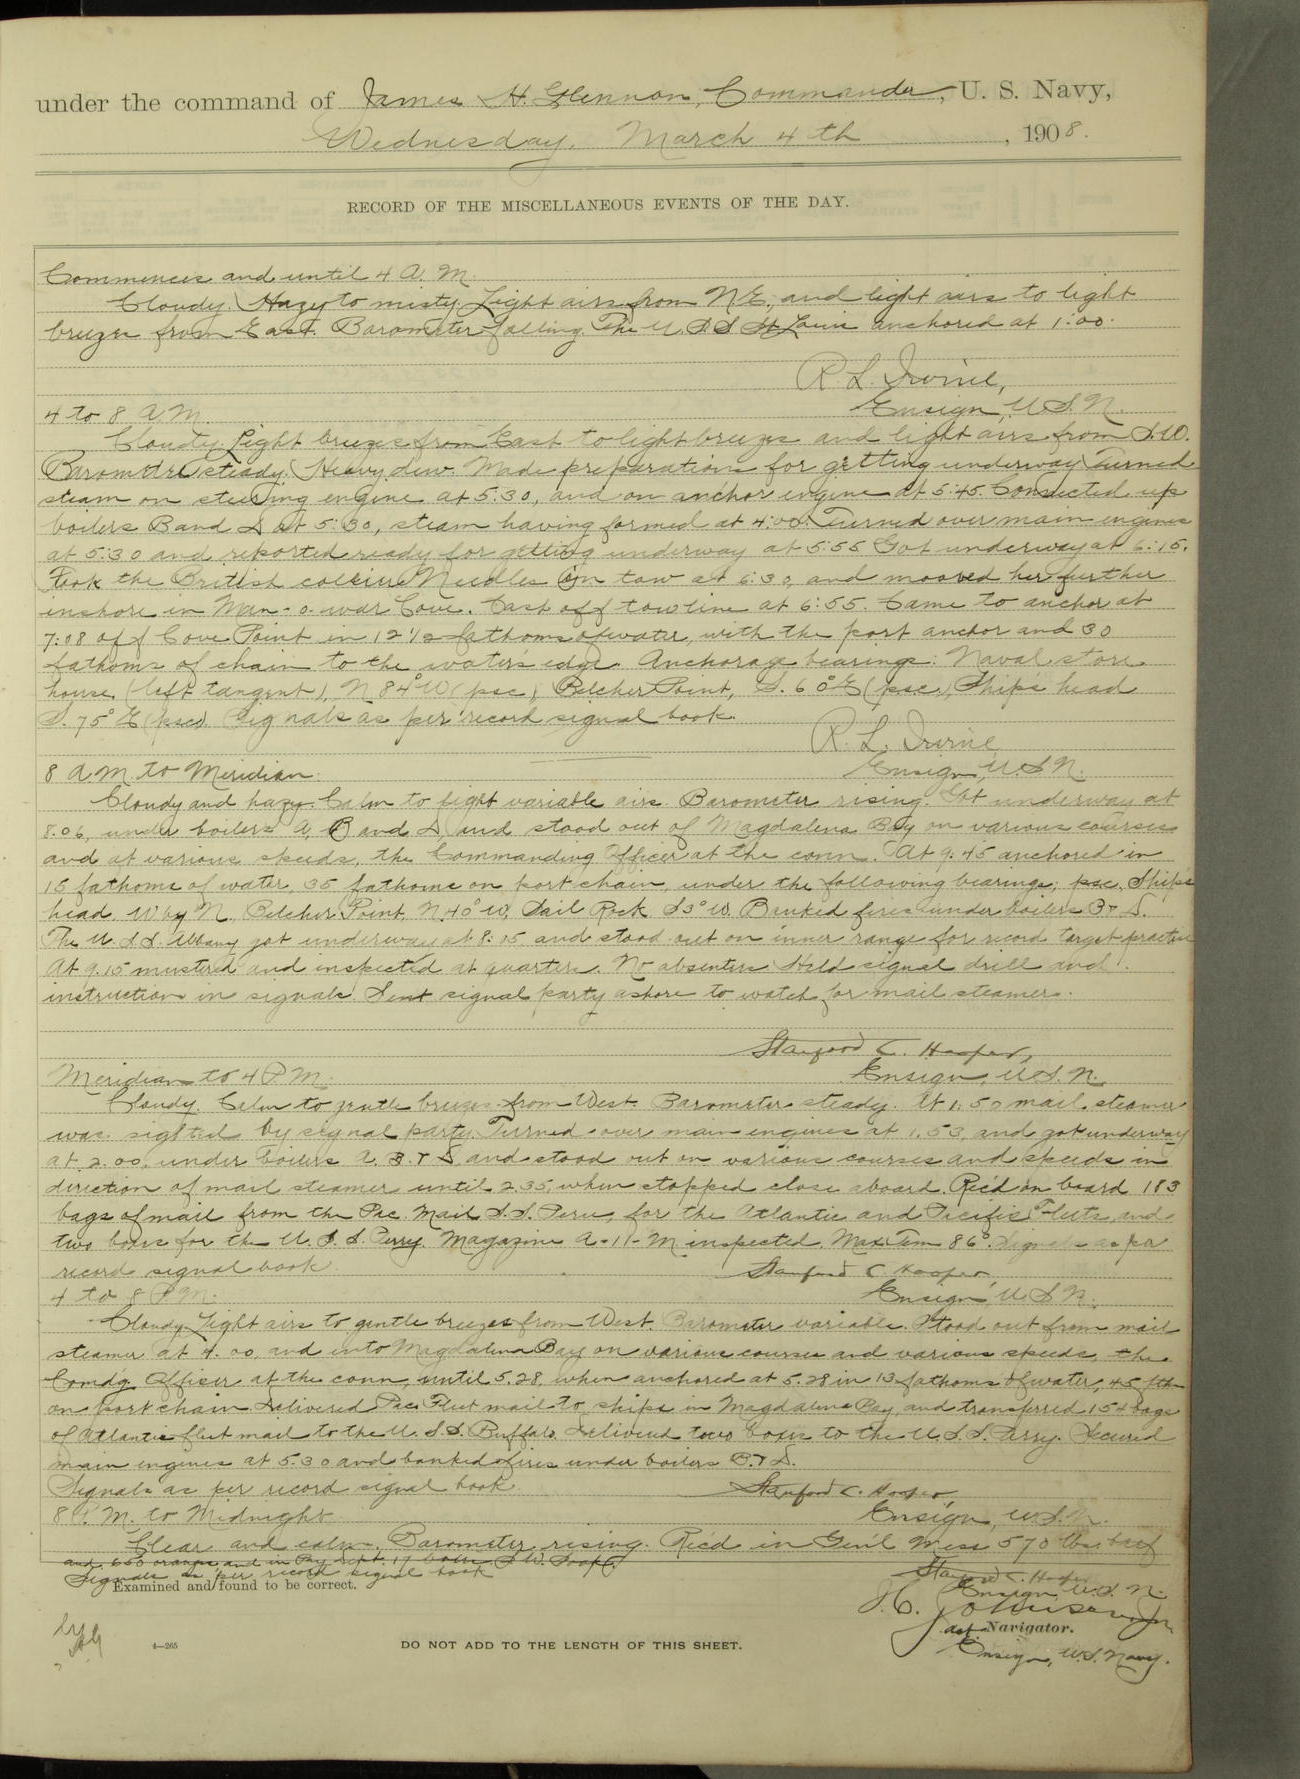 under the command of James H. Glennon, Commander, U. S. Navy,
Wednesday, March 4th, 1908.
RECORD OF THE MISCELLANEOUS EVENTS OF THE DAY.
Commences and until 4 A.M.
Cloudy. Hazy to misty. Light airs from NE, and light airs to light
breezes from East. Barometer falling. The U.S.S. St. Louis anchored at 1:00.
R. L. Irvine,
4 to 8 A.M. Ensign, U.S.N.
Cloudy. Light breezes from East to light breezes and light airs from S.W.
Barometer steady. Heavy dew. Made preparations for getting underway. Turned
steam on steering engine at 5:30, and on anchor engine at 5:45. Connected up
boilers B and D at 5:30, steam having formed at 4:00. Turned over main engines
at 5:30 and reported ready for getting underway at 5:55. Got underway at 6:15.
Took the British collier Needles in tow at 6:30, and moored her further
inshore in Man-o-war Cove. Cast off tow line at 6:55. Came to anchor at
7:08 off Cove Point in 12 1/2 fathoms of water, with the port anchor and 30
fathoms of chain to the water's edge. Anchorage bearings: Naval store
house (left tangent), N 84° W (psc), Belcher Point, S. 60° E (psc), Ship's head
S. 75° E (psc). Signals as per record signal book.
R. L. Irvine
8 A.M. to Meridian. Ensign, U.S.N.
Cloudy and hazy. Calm to light variable airs. Barometer rising. Got underway at
8.06, under boilers A, B and D, and stood out of Magdalena Bay on various courses
and at various speeds, the Commanding Officer at the conn. At 9:45 anchored in
15 fathoms of water, 35 fathoms on port chain, under the following bearings; psc, Ships
head, W by N, Belcher Point, N. 40° W, Sail Rock S 3° W. Banked fires under boilers B & D.
The U.S.S. Albany got underway at 8:15 and stood out on inner range for record target practice
At 9.15 mustered and inspected at quarters. No absentees. Held signal drill and
instruction in signals. Sent signal party ashore to watch for mail steamer.
Stanford C. Hooper,
Meridian to 4 P.M. Ensign, U.S.N.
Cloudy. Calm to gentle breezes from West. Barometer steady. At 1:50 mail steamer
was sighted by signal party. Turned over main engines at 1.53, and got underway
at 2.00, under boilers A, B & D, and stood out on various courses and speeds in
direction of mail steamer until 2.35, when stopped close aboard. Rec'd on board 183
bags of mail from the Pac. Mail S.S. Peru, for the Atlantic and Pacific Fleets, and
two boxes for the U.S.S. Perry. Magazine A-11-M inspected. Max. Tem 86°. Signals as per
record signal book. Stanford C. Hooper
4 to 8 P.M. Ensign, U.S.N.
Cloudy. Light airs to gentle breezes from West. Barometer variable. Stood out from mail
steamer at 4.00, and into Magdalena Bay on various courses and various speeds, the
Comdg. Officer at the conn, until 5.28, when anchored at 5.28 in 13 fathoms of water, 45 fths
on port chain. Delivered Pac. Fleet mail to ships in Magdalena Bay, and transferred 154 bags
of Atlantic fleet mail to the U.S.S. Buffalo. Delivered two boxes to the U.S.S. Perry. Secured
main engines at 5.30 and banked fires under boilers B & D.
Signals as per record signal book. Stanford C. Hooper
8 P.M. to Midnight Ensign, U.S.N.
Clear and calm. Barometer rising. Rec'd in Gen'l Mess 570 lbs. beef
and 650 oranges and in Pay Dept. 17 boxes S.W. Soap.
Signals as per record signal book Stanford C. Hooper
Ensign U.S.N.
Examined and found to be correct.
Act. Navigator.
Ensign, U.S. Navy.
4—265
DO NOT ADD TO THE LENGTH OF THIS SHEET.